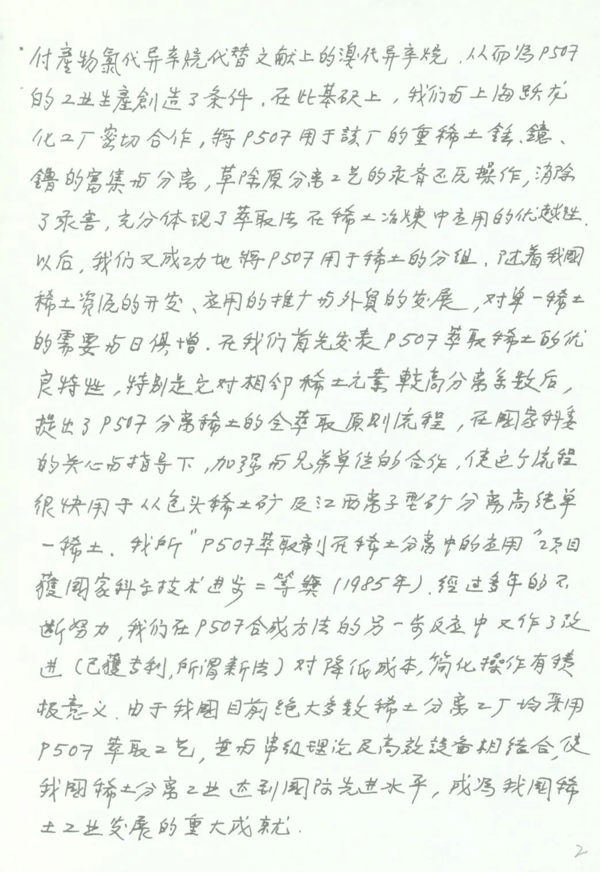 付產物氯代异辛烷代替文献上的溴代异辛烷.从而為P507
的工业生產創造了条件.在此基础上,我们与上海跃龙
化工厂密切合作,将P507用于該厂的重稀土銩、鐿、
鑥的富集与分离,革除原分离工艺的汞齐还原操作,消除
了汞害,充分体现了萃取法在稀土冶煉中应用的优越性.
以后,我们又成功地将P507用于稀土的分组.随着我國
稀土资源的开发、应用的推广与外貿的发展,对单一稀土
的需要与日俱增.在我们首先发表P507萃取稀土的优
良特性,特别是它对相邻稀土元素較高分离系数后,
提出了P507分离稀土的全萃取原则流程,在國家科委
的关心与指导下,加强与兄弟单位的合作,使这个流程
很快用于从包头稀土矿及江西离子型矿分离高纯单
一稀土.我所"P507萃取剂在稀土分离中的应用"项目
獲國家科学技术进步二等奬(1985年).经过多年的不
断努力,我们在P507合成方法的另一步反应中又作了改
进(已獲专利,所谓新法)对降低成本,简化操作有積
极意义.由于我國目前绝大多数稀土分离工厂均采用
P507萃取工艺,並与串级理论及高效設备相结合,使
我國稀土分离工业达到國际先进水平,成為我國稀
土工业发展的重大成就.
2